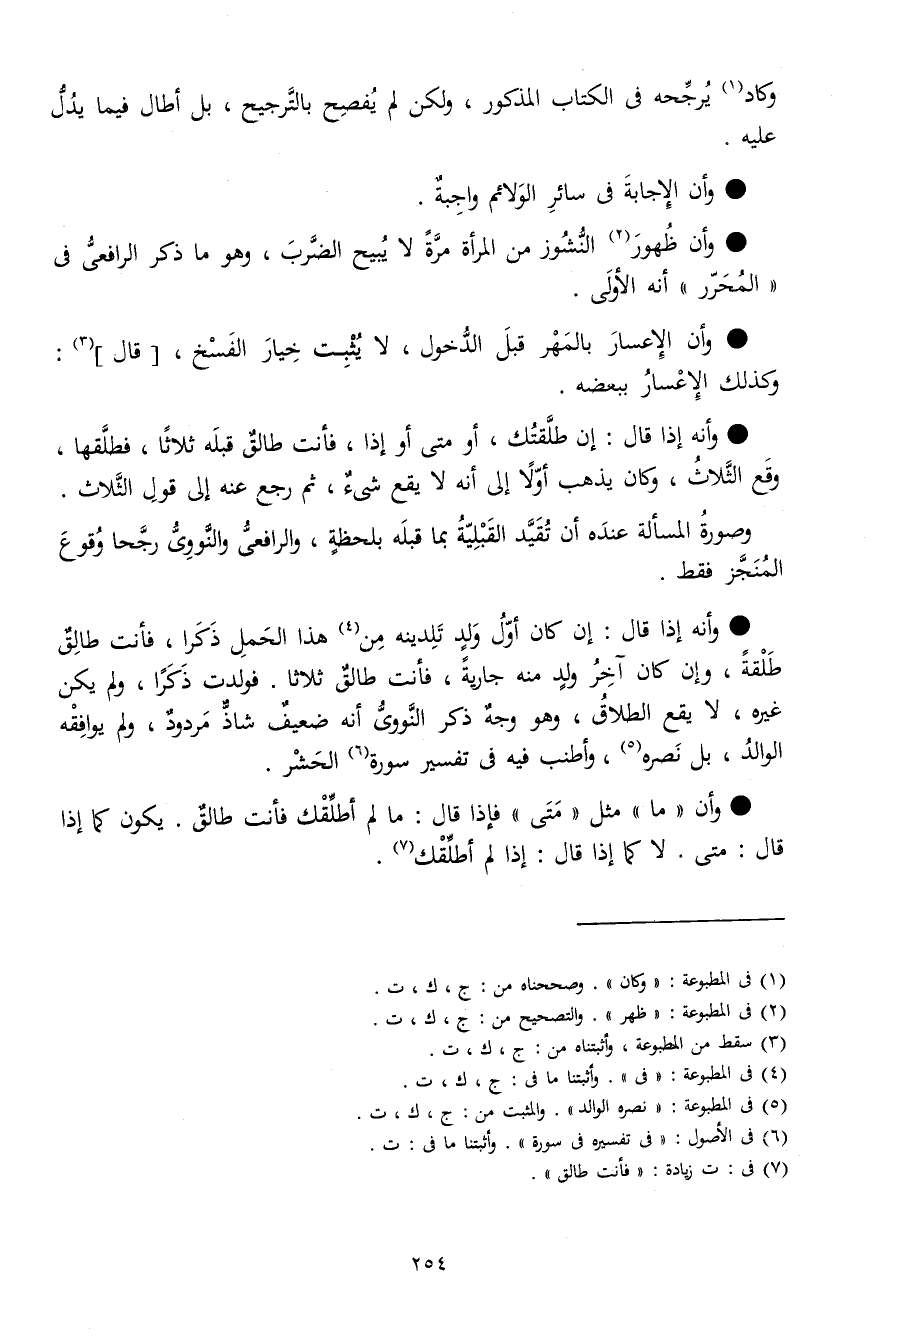 وكاد(١) يُرجِّحه فى الكتاب المذكور ، ولكن لم يُفصِح بالتَّرجيح ، بل أطال فيما يدُلُّ
عليه .
● وأن الإجابةَ فى سائرِ الوَلائم واجِبةٌ .
● وأن ظُهورَ(٢) النُّشُوز من المرأة مرَّةً لا يُبيح الضَّربَ ، وهو ما ذكر الرافعىُّ فى
« المُحَرّر » أنه الأولَى .
● وأن الإعسارَ بالمَهْر قبلَ الدُّخول ، لا يُثْبِت خِيارَ الفَسْخ ، [ قال ](٣) :
وكذلك الإعْسارُ ببعضه .
● وأنه إذا قال : إن طلَّقتُك ، أو متى أو إذا ، فأنت طالقٌ قبلَه ثلاثًا ، فطلَّقها ،
وقَع الثَّلاثُ ، وكان يذهب أوّلًا إلى أنه لا يقع شىءٌ ، ثم رجع عنه إلى قولِ الثَّلاث .
وصورةُ المسألة عندَه أن تُقَيَّد القَبْلِيّةُ بما قبلَه بلحظةٍ ، والرافعىُّ والنَّووِىُّ رجَّحا وُقوعَ
المُنَجَّز فقط .
● وأنه إذا قال : إن كان أوّلُ وَلدٍ تَلِدينه مِن(٤) هذا الحَملِ ذَكَرا ، فأنت طالِقٌ
طَلْقةً ، وإن كان آخِرُ ولدٍ منه جاريةً ، فأنت طالقٌ ثلاثا . فولدت ذَكَرًا ، ولم يكن
غيره ، لا يقع الطلاقُ ، وهو وجهٌ ذكر النَّووىُّ أنه ضعيفٌ شاذٌّ مَردودٌ ، ولم يوافِقْه
الوالدُ ، بل نَصره(٥) ، وأطنب فيه فى تفسير سورة(٦) الحَشْر .
● وأن « ما » مثل « مَتَى » فإذا قال : ما لم أطلِّقْك فأنت طالقٌ . يكون كما إذا
قال : متى . لا كما إذا قال : إذا لم أطلِّقْك(٧) .
(١) فى المطبوعة : « وكان » . وصححناه من : ج ، ك ، ت .
(٢) فى المطبوعة : « ظهر » . والتصحيح من : ج ، ك ، ت .
(٣) سقط من المطبوعة ، وأثبتناه من : ج ، ك ، ت .
(٤) فى المطبوعة : « فى » . وأثبتنا ما فى : ج ، ك ، ت .
(٥) فى المطبوعة : « نصره الوالد » . والمثبت من : ج ، ك ، ت .
(٦) فى الأصول : « فى تفسيره فى سورة » . وأثبتنا ما فى : ت .
(٧) فى : ت زيادة : « فأنت طالق » .
٢٥٤